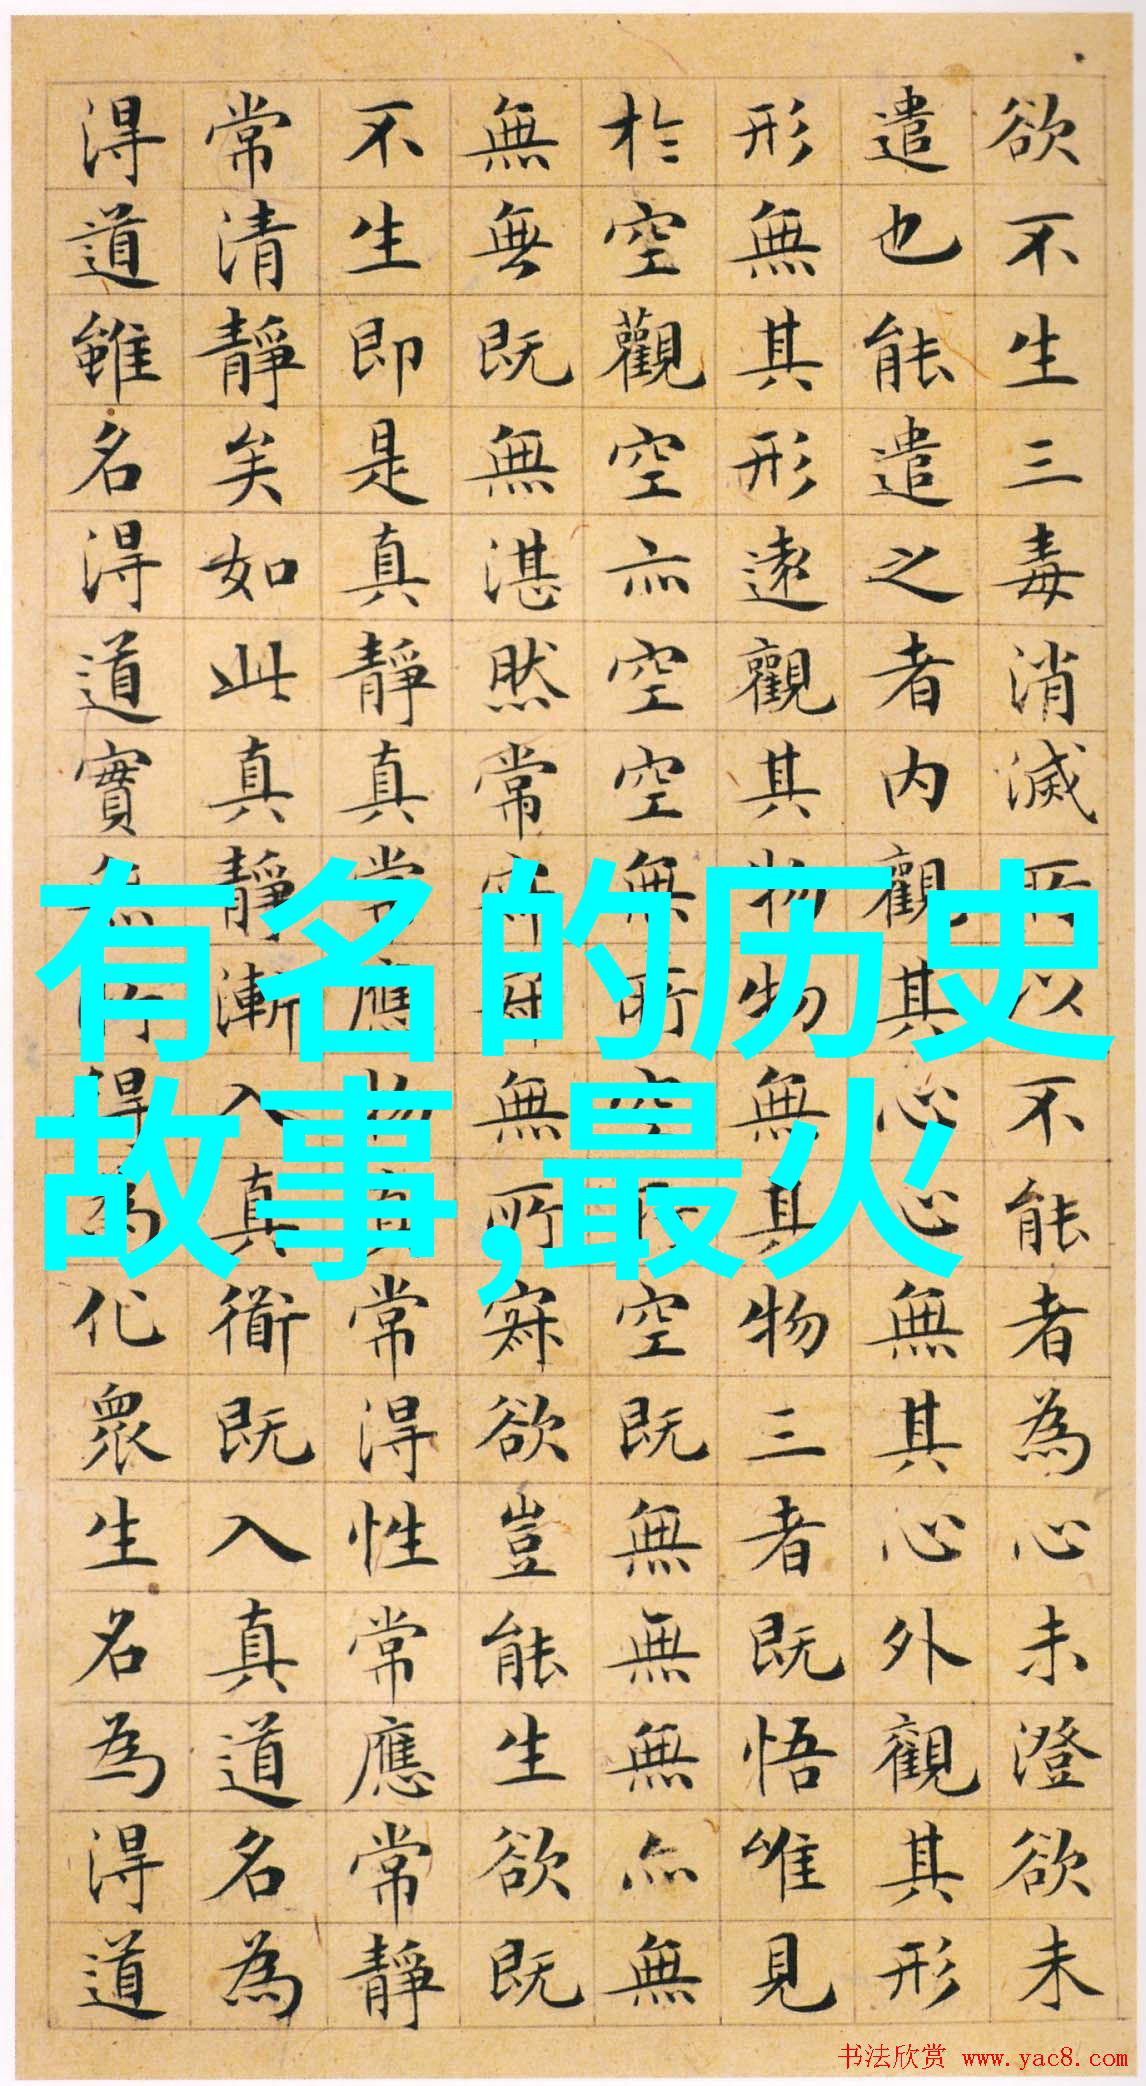 欲不生三毒消滅所以不能者為心未澄欲未
遣也能遣之者内觀其心心無其心外觀其形
形無其形遠觀其物物無其物三者既悟唯見
於空觀空亦空空無所空所空既無無無亦無
無無既無湛然常寂寂無所寂欲豈能生欲既
不生即是真靜真常應物真常得性常應常靜
常清靜矣如此真靜漸入真衟既入真道名為
得道雖名得道實無所得為化眾生名為得道
有名的历史
故事,最火
书法欣赏 www.yac8.com